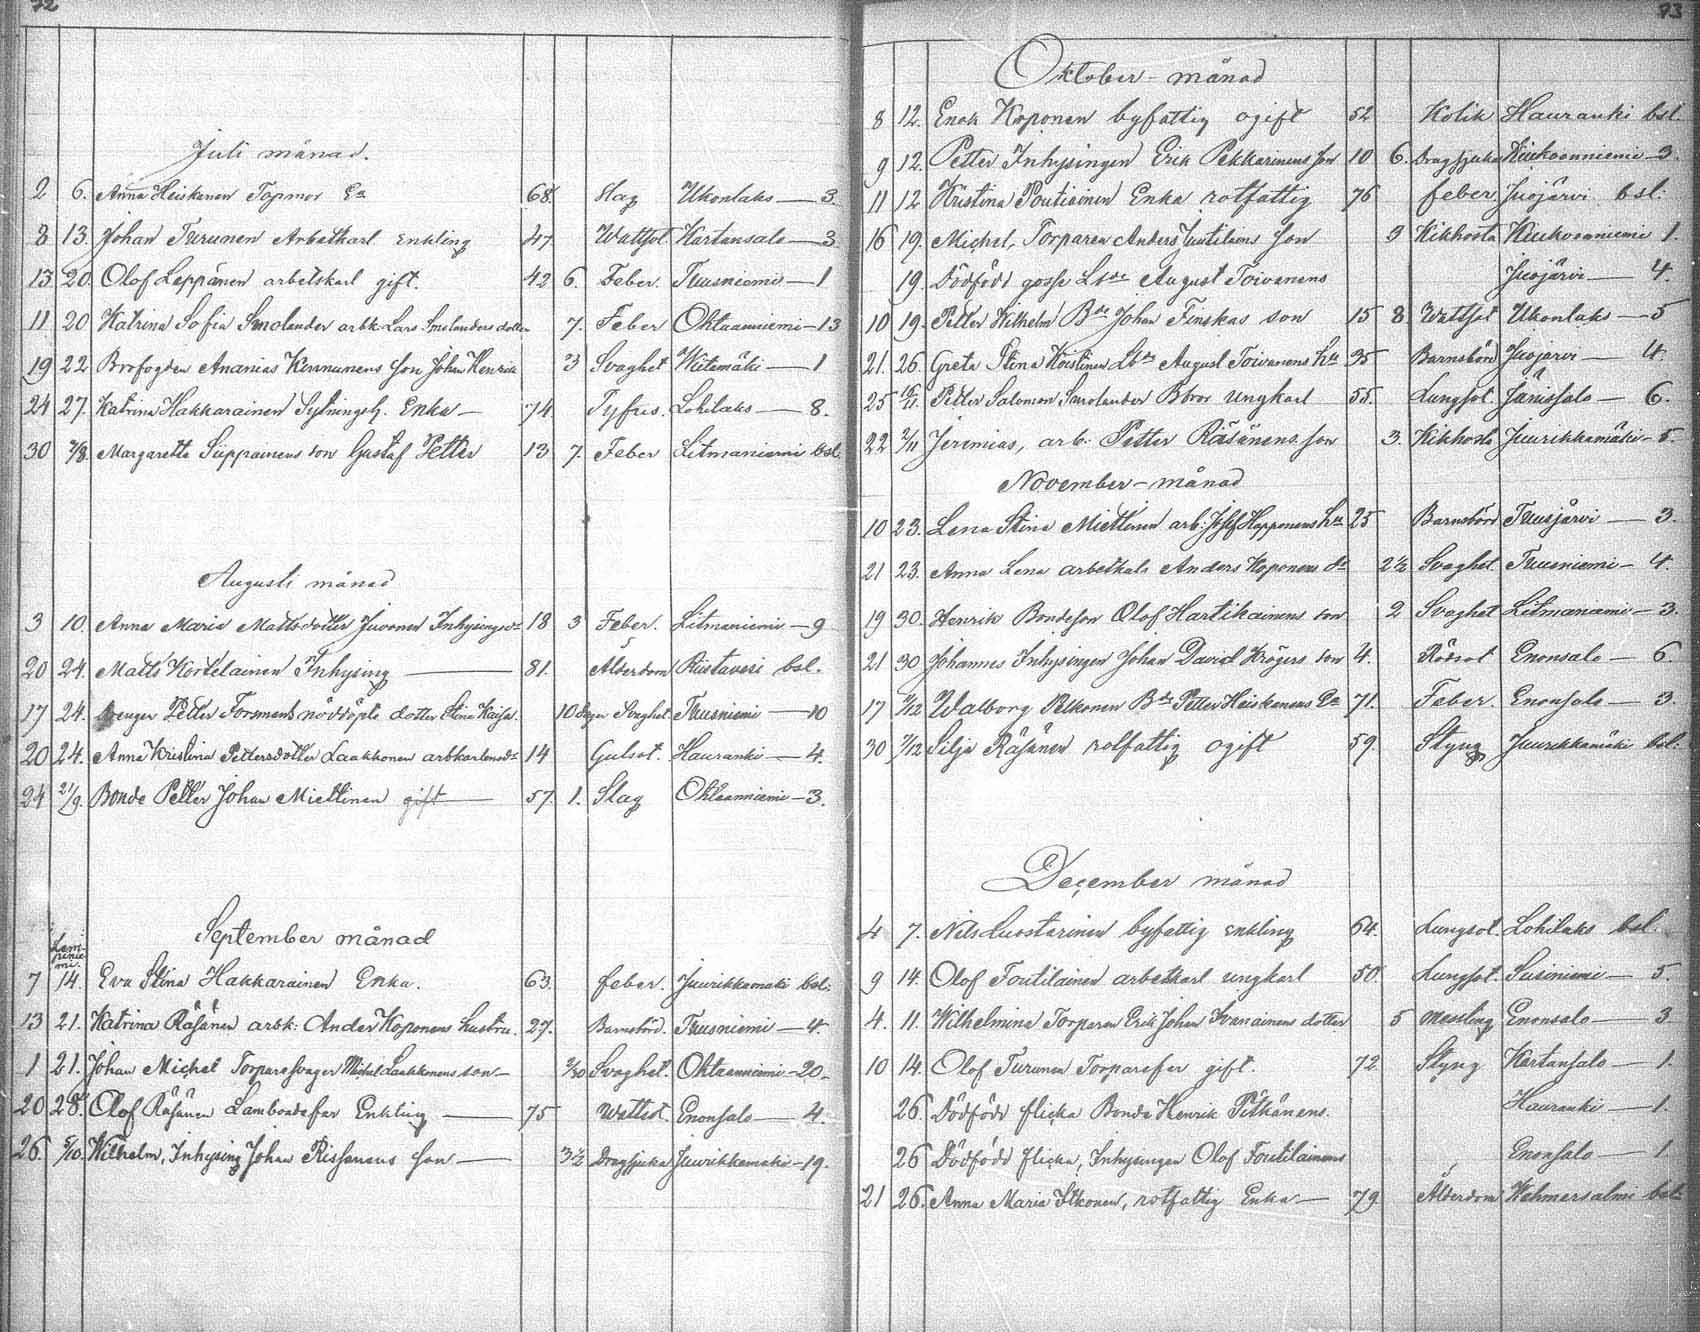 72
Juli månad.
2 6. Anna Heiskanen Topmor Ea 68. Slag Ukonlaks — 3.
8 13. Johan Turunen Arbetkarl enkling 47. Wattsot Kartansalo — 3.
13 20. Olof Leppänen arbetskarl gift. 42 6. Feber. Tuusniemi — 1
11 20 Katrina Sofia Smolander arbk. Lars Smolanders dotter 7. Feber Ohtaanniemi — 13
19 22 Brofogden Ananias Kinnunens son Johan Henrik 3 Svaghet Wiitamäki — 1
24 27. Katrina Hakkarainen Sytningsh. Enka — 74. Tyfus. Lohilaks — 8.
30 3/8. Margaretta Suppainens son Gustaf Petter 13 7. Feber Litmaniemi bsl.
Augusti månad
3 10. Anna Maria Mattsdotter Juvonen Inhysings dr 18 3 Feber. Litmaniemi — 9
20 24. Matts Kortelainen Inhysing — 81. Ålderdom Riistavesi bsl.
17 24. Drenger Petter Forsmans nöddöpte dotter Stina Kaisa. 10 dagar Svaghet Tuusniemi — 10
20 24. Anna Kristina Pettersdotter Laakkonen arbkarlens dr 14 Gulsot. Hauranki — 4.
24 21/9. Bonde Petter Johan Miettinen gift — 57. 1. Slag Ohtaanniemi — 3.
September månad
Lam-
pinie-
mi.
7 14. Eva Stina Hakkarainen Enka. 63. feber. Juurikkamäki bsl.
13 21. Katrina Räsänen arbk: Ander Koponens hustru. 27. Barnsbörd. Tuusniemi — 4.
1 21. Johan Michel Torparesvager Michel Laakkonens son — 2/30 Svaghet. Ohtaanniemi — 20.
20 28. Olof Räsänen Lambondefar Enkling — 75 Wattsot. Enonsalo — 4.
26. 5/10. Wilhelm, Inhysing Johan Rissanens son — 3 1/2 Dragsjuka Juurikkamäki — 19.
73
Oktober – månad
8 12. Enok Koponen byfattig ogift 52 Kolik Hauranki bsl.
9 12. Petter Inhysingen Erik Pekkarinens son 10 6. Dragsjuka Kiukoonniemi — 3.
11 12 Kristina Poutiainen Enka rotfattig 76 feber. Juojärvi bsl.
16 19. Michel, Torparen Anders Juutilains son 3 Kikhosta Kiukoonniemi 1.
19. Dödfödd gosse Lbde August Toivanens Juojärvi — 4.
10 19. Petter Wilhelm Bde Johan Finskas son 15 8 Wattsot Ukonlaks — 5
21. 26. Greta Stina Koistinen Lbde August Toivanens hu 35 Barnsbörd Juojärvi — 4.
25 Petter Salomon Smolander Bbror Ungkarl 55. Lungsot. Jänissalo — 6.
22 2/11 Jeremias, arb. Petter Räsänens son 3. Kikhosta Juurikkamäki — 5.
November – månad
10 23. Lena Stina Miettinen arb. Josef Happonens hu 25 Barnsbörd Tuusjärvi — 3.
21 23. Anna Lena arbetkals Anders Koponens dr 2 1/2 Svaghet. Tuusniemi — 4.
19 30. Henrik Bondeson Olof Hartikainens son 2 Svaghet Litmaniemi — 3.
21 30 Johannes Inhysingen Johan David Krögers son 4. Rödsot Enonsalo — 6.
17 Walborg Pelkonen Bde Petter Heiskanens Ea 71. Feber. Enonsalo — 3.
30 7/12 Silja Räsänen rotfattig ogift 59. Styng Juurikkamäki bsl.
December månad
4 7. Nils Luostarinen byfattig enkling 64. Lungsot. Lohilaks bsl.
9 14. Olof Toutilainen arbetkarl ungkarl 50. Lungsot. Susiniemi — 5.
4. 11. Wilhelmina Torparen Erik Johan Ivanainens dotter 5 messling Enonsalo — 3.
10 14. Olof Turunen Torparefar gift. 72 Styng Kartansalo — 1.
26. Dödfödd flicka Bonde Henrik Pitkänens. Hauranki — 1.
26 Dödfödd flicka, Inhysingen Olof Toutilainens Enonsalo — 1
21 26. Anna Maria Itkonen, rotfattig Enka — 79. Ålderdom Wehmersalmi bsl.